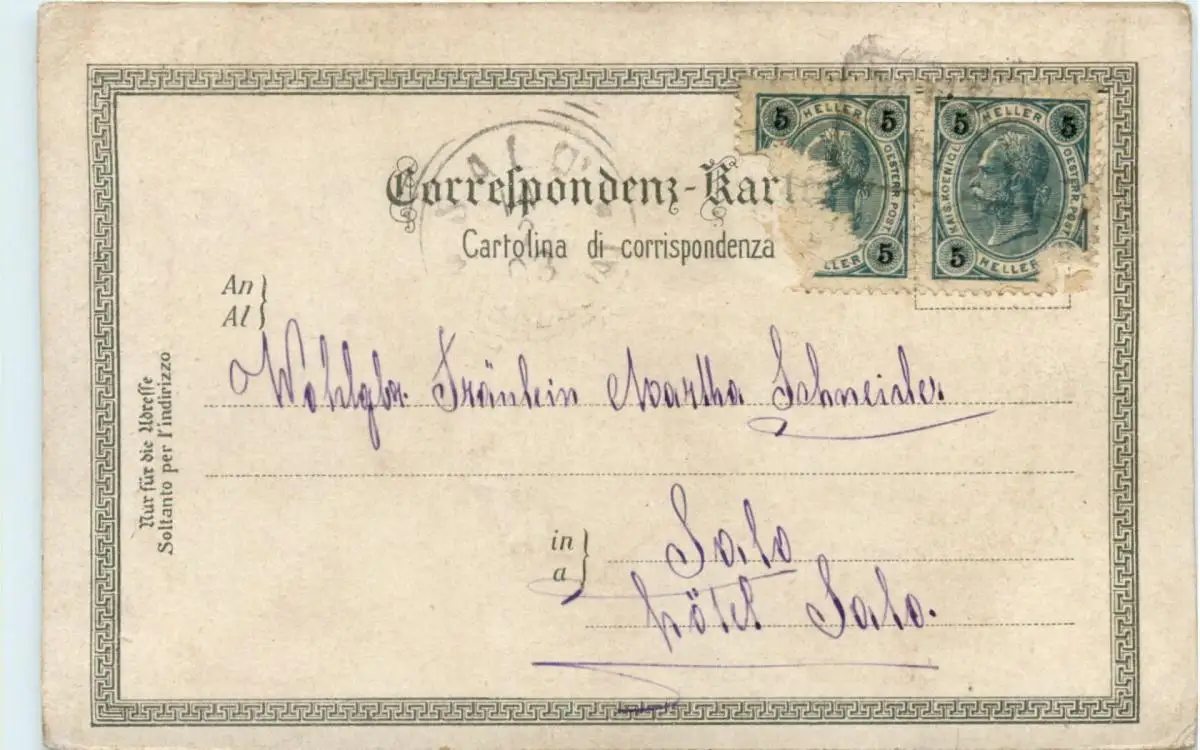 Correspondenz-Kart
Cartolina di corrispondenza
5 HELLER 5
OESTERR. POST
HELLER 5
5 HELLER 5
KAIS. KOENIGL. OESTERR. POST
5 HELLER
An
Al
Wohlgbr. Fräulein Martha Schneider
Nur für die Adresse
Soltanto per l'indirizzo
in
a
Salo
Hôtel Salo.